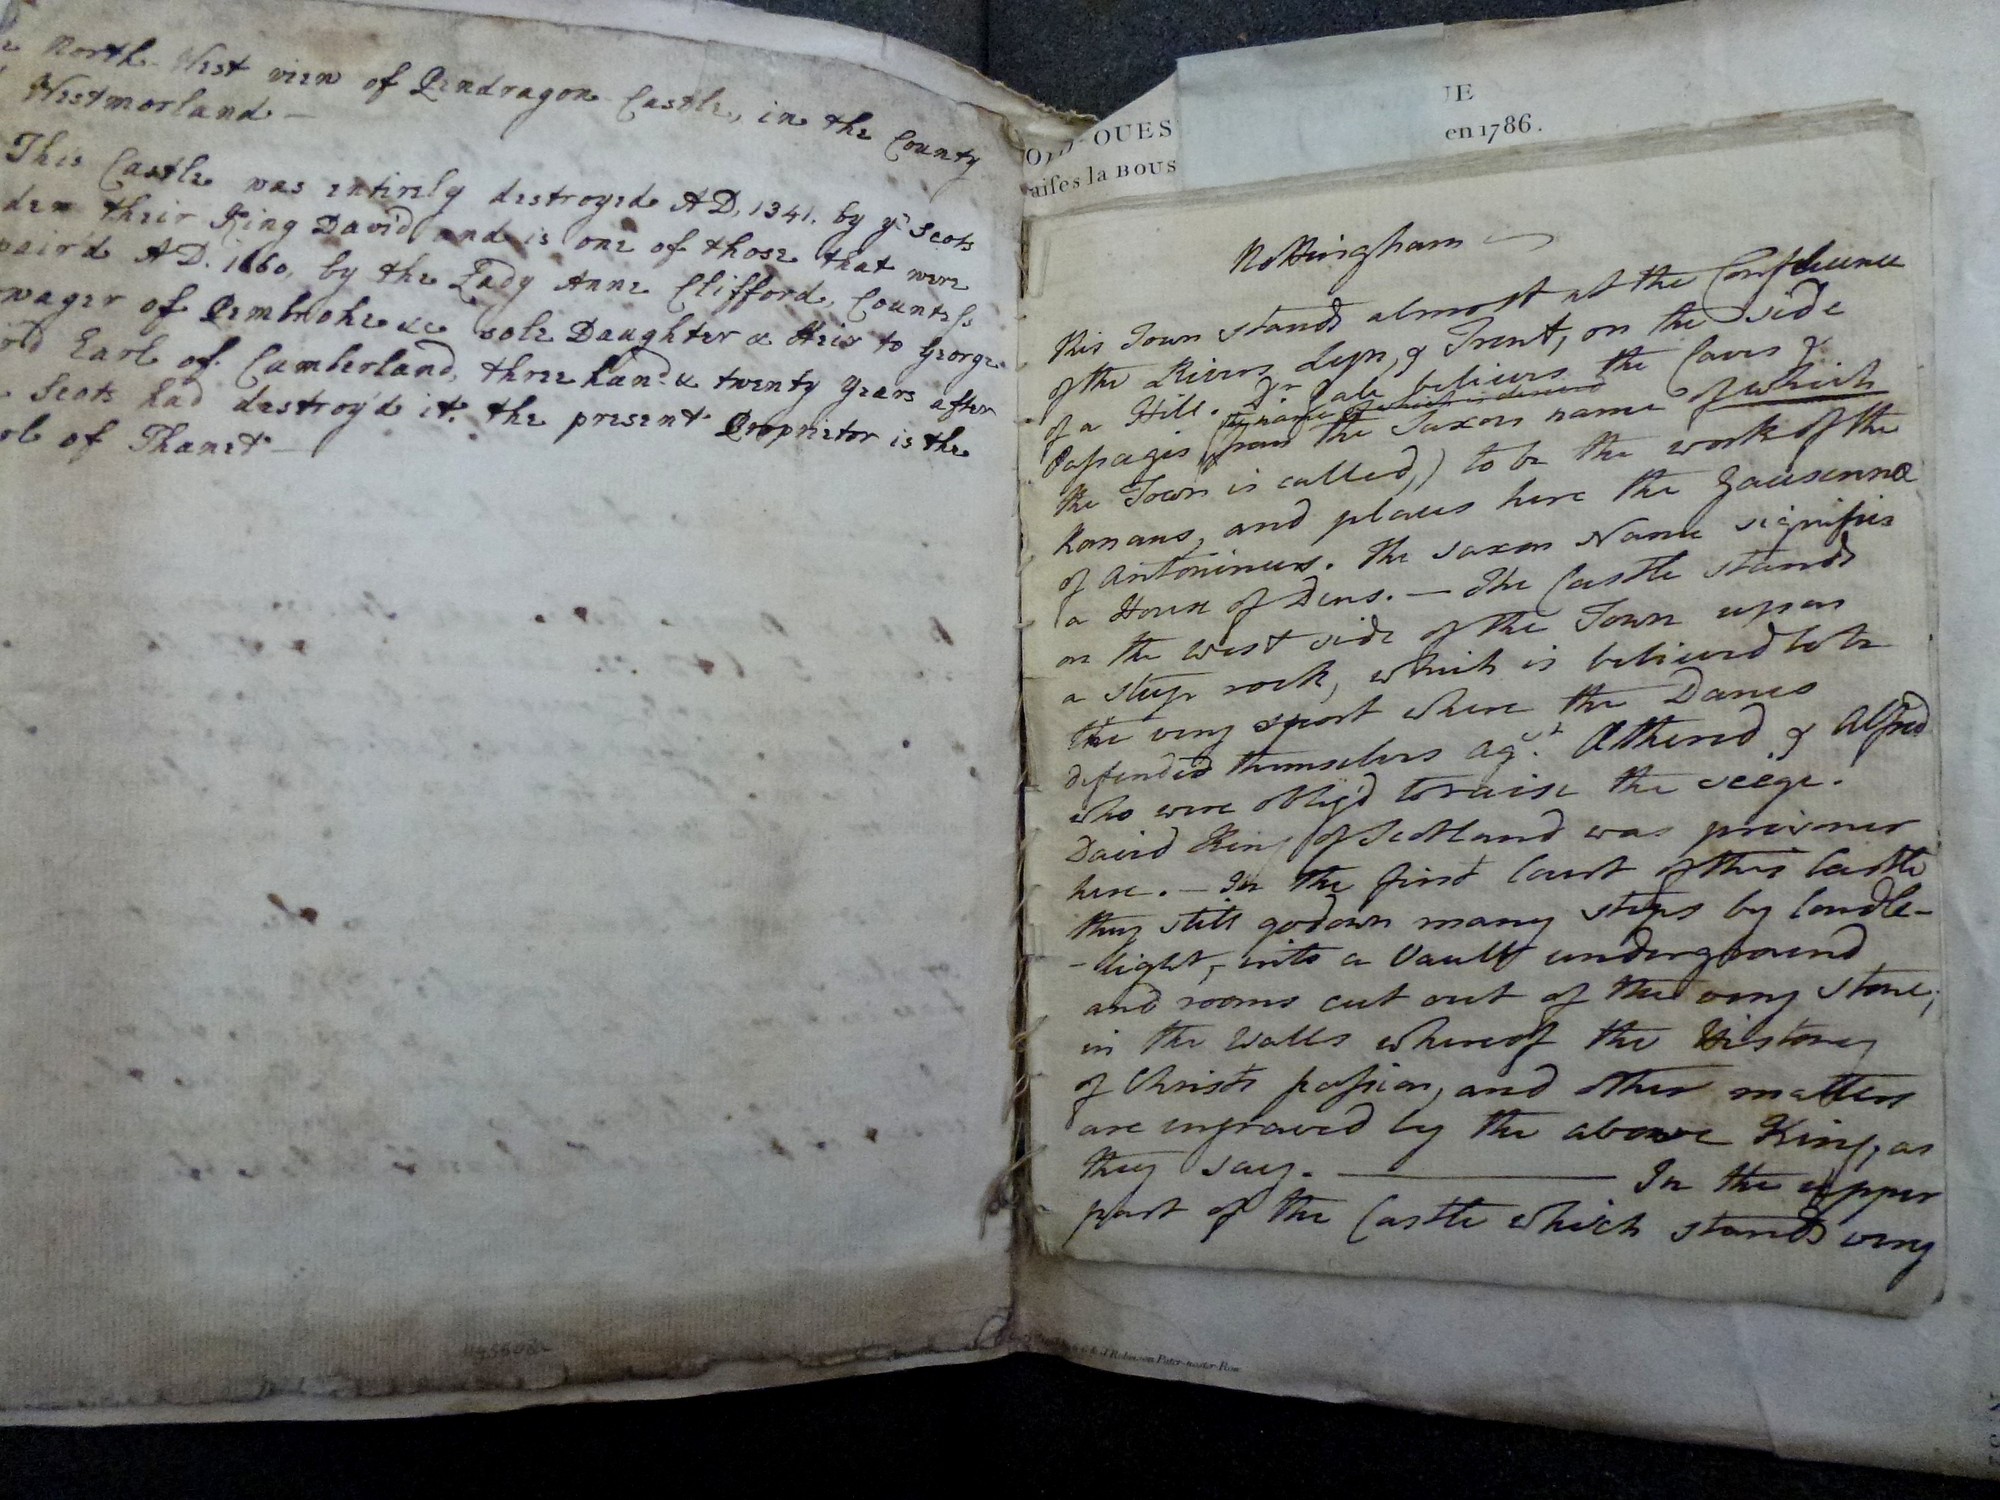 North-West view of Pendragon Castle, in the County
Westmorland —
This Castle was entirely destroyed AD, 1341. by ye Scots
der their King David, and is one of those that were
pair'd AD. 1660, by the Lady Anne Clifford, Countess
wager of Pembroke &c sole Daughter & Heir to George
rd Earl of Cumberland, three hund: & twenty years after
Scots had destroy'd it. the present Proprietor is the
rl of Thanet —
OUES
aifes la BOUS
UE
en 1786.
Nottingham
this Town stands almost at the Confluence
of the Rivers Lyn, & Trent, on the side
of a Hill. Dr Gale believes the Caves &
the name of which is derived
Passages (from the Saxon name of which
the Town is called,) to be the work of the
Romans, and places here the Gausennæ
of Antoninus. The Saxon Name signifies
a House of Dens. — The Castle stands
on the West side of the Town upon
a steep rock, which is believed to be
the very spot where the Danes
defended themselves agst. Athered & Alfred
who were oblig'd to raise the seige.
David King of Scotland was prisoner
here. — In the first Court of this Castle
they still go down many steps by Candle-
-light, into a Vault underground
and rooms cut out of the very stone,
in the Walls whereof the History
of Christs passion, and other matters
are engraved by the above King, as
they say. — In the upper
part of the Castle which stands very
J Robinson Pater-noster-Row